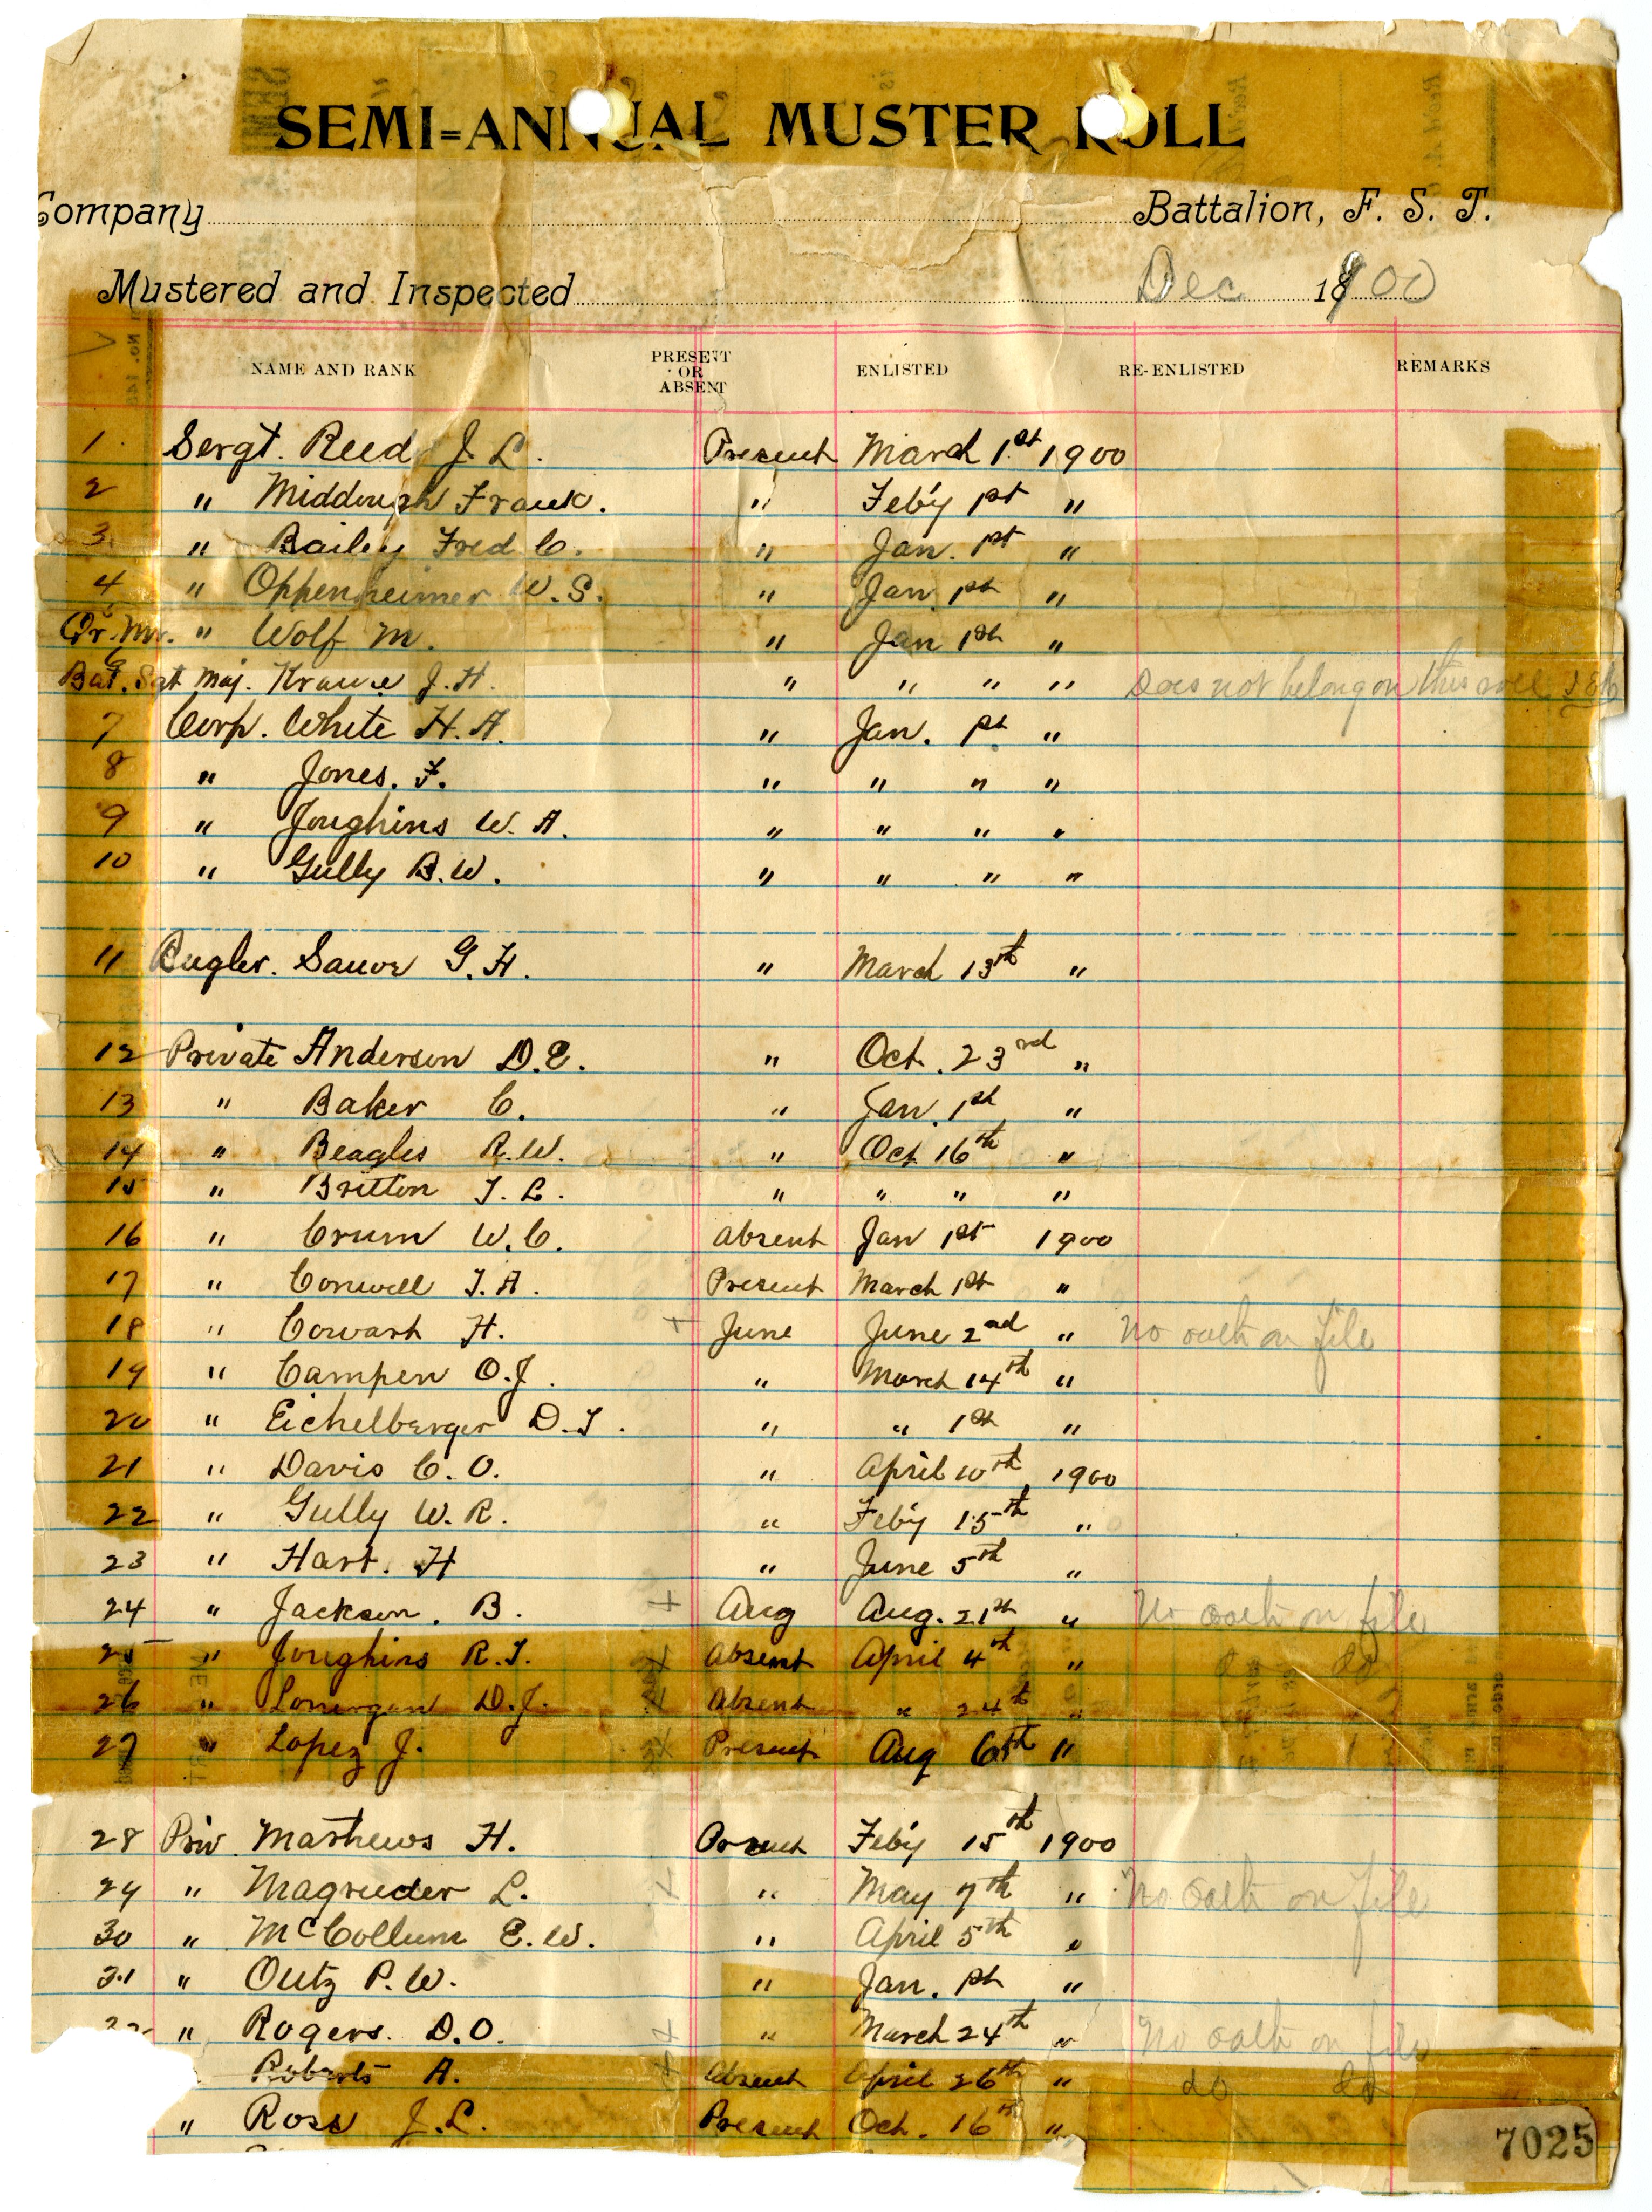 SEMI=ANNUAL MUSTER ROLL
Company Battalion, F. S. T.
Mustered and Inspected Dec 1900
NAME AND RANK PRESENT OR ABSENT ENLISTED RE-ENLISTED REMARKS
1 Sergt. Reed J. L. Present March 1st 1900
2 " Middough Frank. " Feb'y 1st "
3 " Bailey Fred C. " Jan. 1st "
4 " Oppenheimer W. S. " Jan. 1st "
5 Qr. Mr. " Wolf M. " Jan 1st "
6 Bat. Sgt Maj. Krause J. H. " " " " Does not belong on this roll
7 Corp. White H. A. " Jan. 1st "
8 " Jones. F. " " " "
9 " Joughins W. A. " " " "
10 " Gully B. W. " " " "
11 Bugler. Sauer G. H. " March 13th "
12 Private Anderson D. E. " Oct. 23rd "
13 " Baker C. " Jan. 1st "
14 " Beagles R. W. " Oct 16th "
15 " Britton T. L. " " " "
16 " Crum W. C. Absent Jan 1st 1900
17 " Conwell T. A. Present March 1st "
18 " Cowart H. + June June 2nd " No oath on file
19 " Campen O. J. " March 14th "
20 " Eichelberger D. T. " " 1st "
21 " Davis C. O. " April 10th 1900
22 " Gully W. R. " Feb'y 15th "
23 " Hart. H " June 5th "
24 " Jackson. B. + Aug Aug. 21st " No oath on file
25 " Joughins R. T. Absent April 4th " do do
26 " Lonergan D. J. Absent " 24t "
27 " Lopez J. Present Aug 6th "
28 Priv. Mathews H. Present Feb'y 15th 1900
29 " Magruder L. " May 7th " No oath on file
30 " McCollum E. W. " April 5th "
31 " Outz P. W. " Jan. 1st "
" Rogers. D. O. + " March 24th " No oath on file
Roberts A. + Absent April 26th " do do
" Ross J. L. Present Oct. 16th "
7025